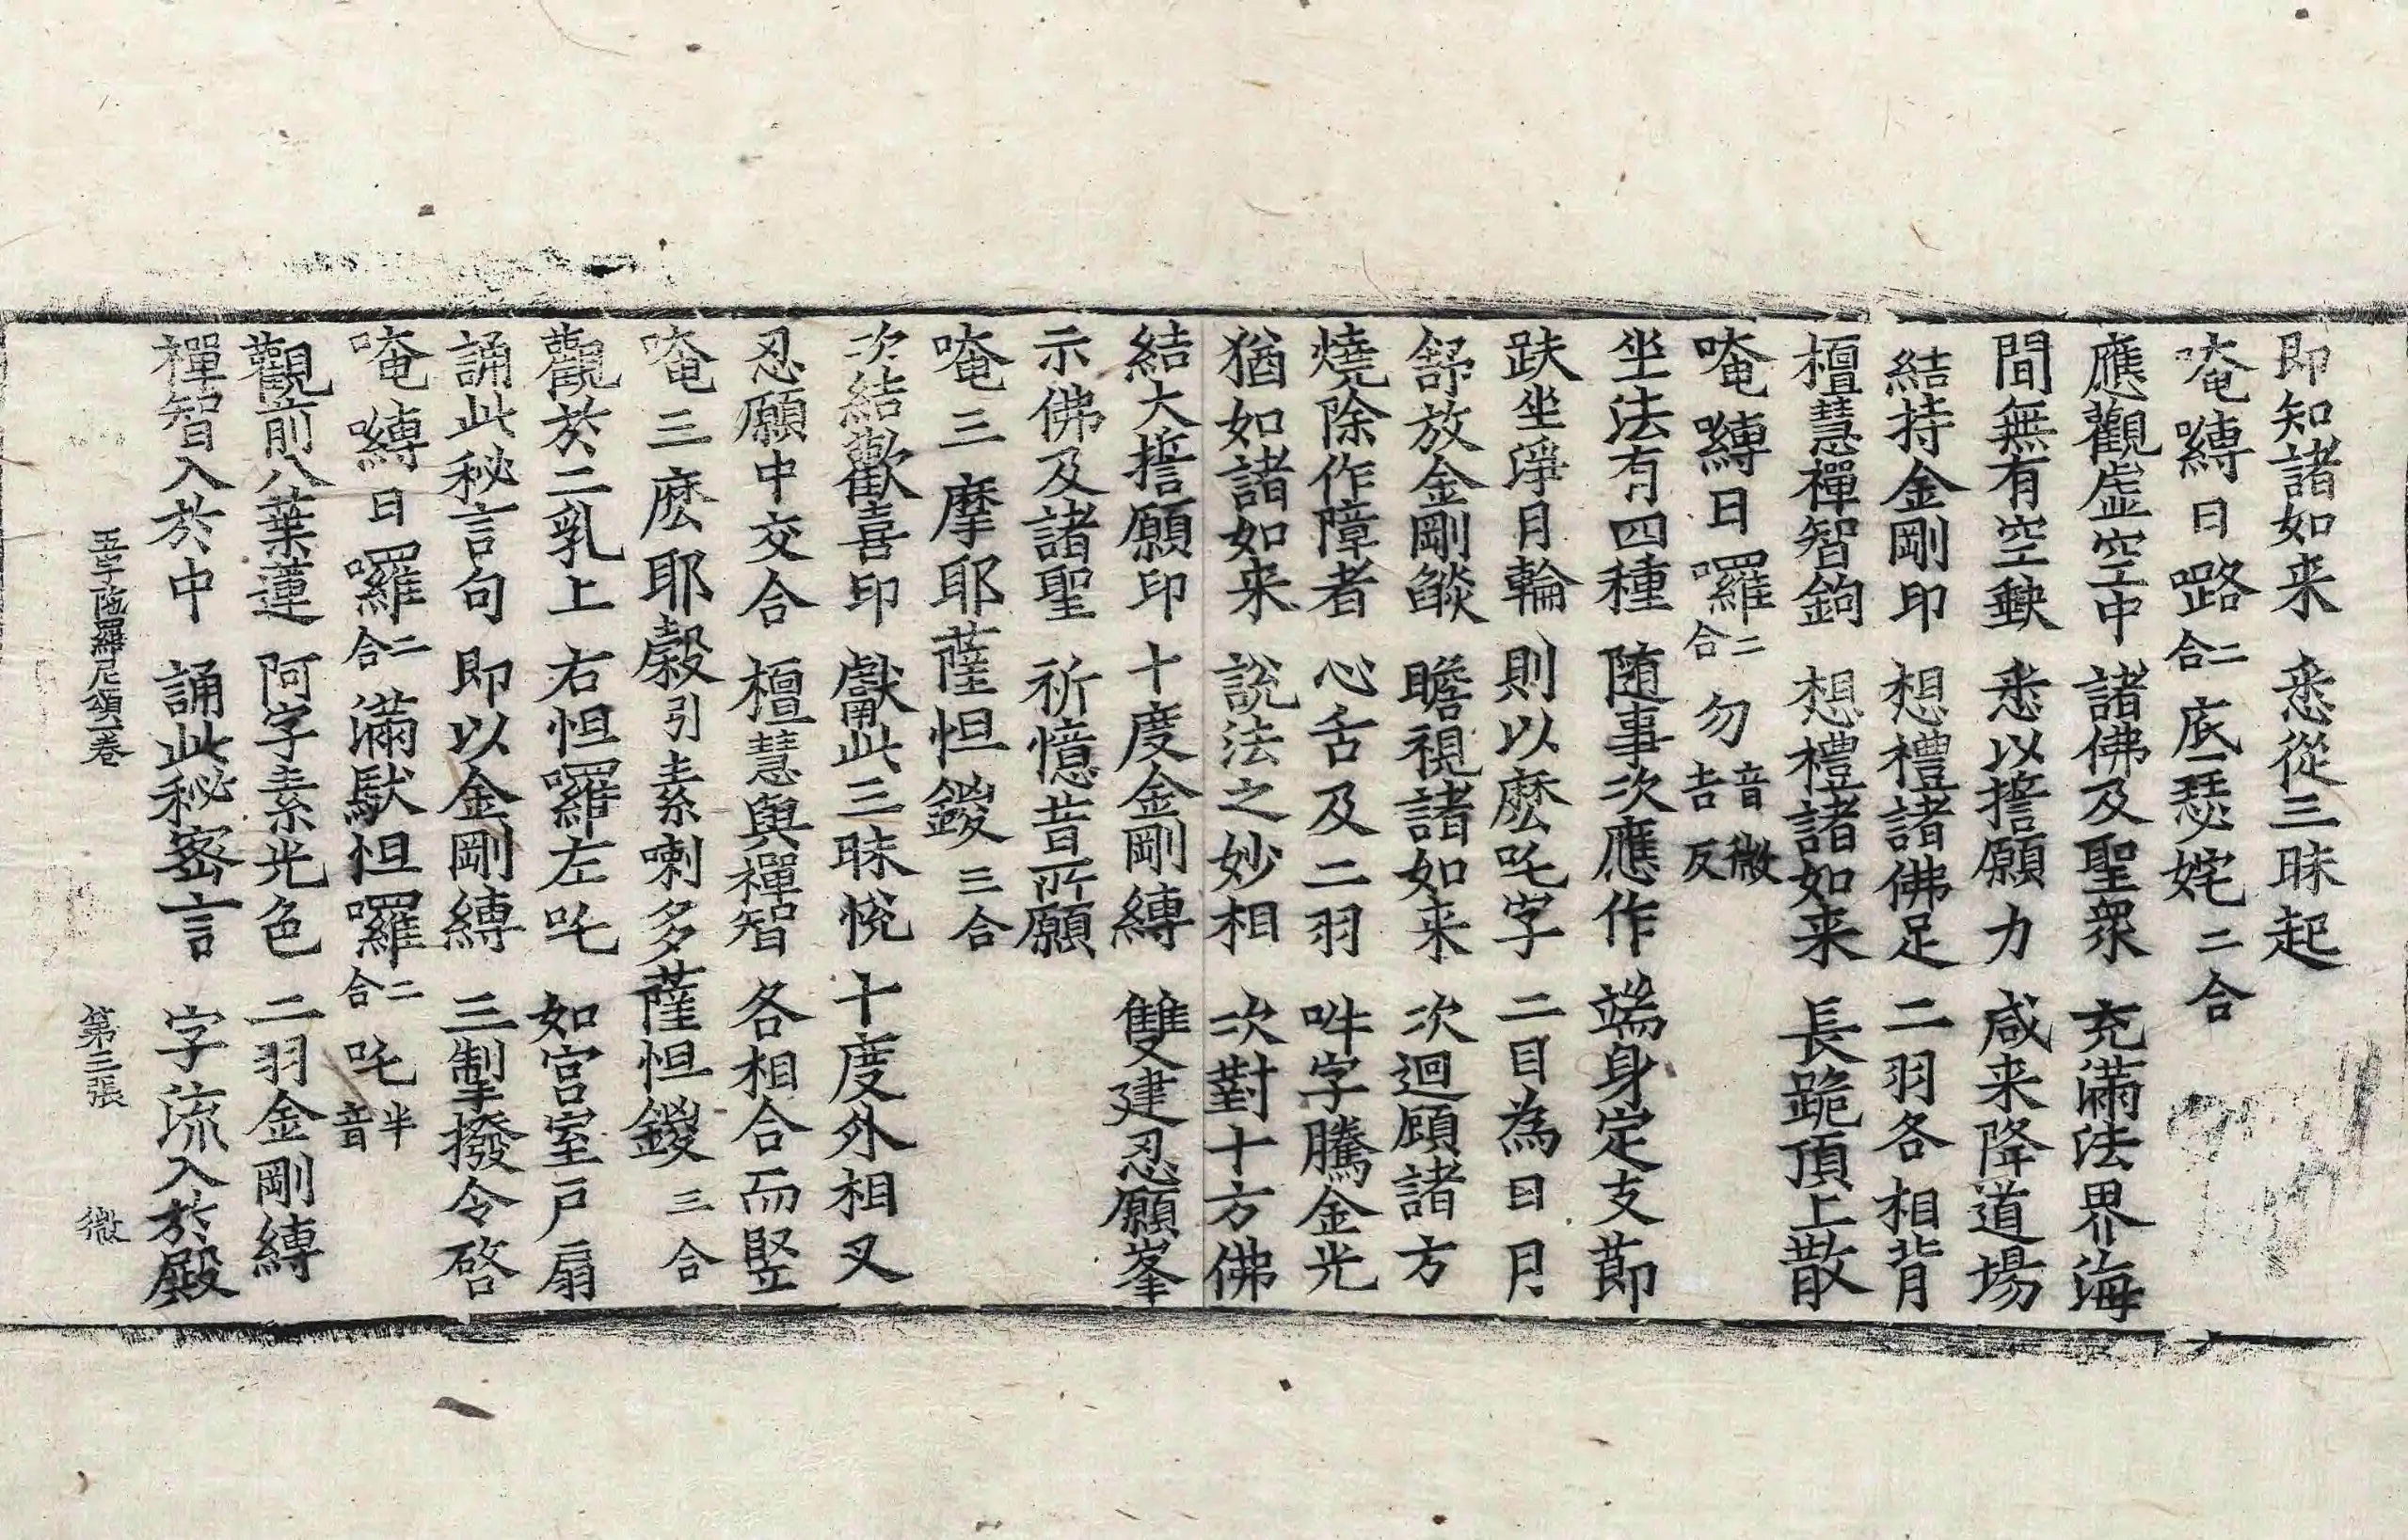 即知諸如来 悉從三昧起
唵 嚩日㘕二合 底瑟姹二合
應觀虛空中 諸佛及聖衆 充滿法界海
間無有空缺 悉以擔願力 咸来降道場
結持金剛印 想禮諸佛足 二羽各相背
檀慧禪智鉤 想禮諸如来 長跪頂上散
唵 嚩日囉二合 勿音微吉反
坐法有四種 随事次應作 端身定支節
趺坐淨月輪 則以麽吒字 二目為日月
舒放金剛燄 瞻視諸如来 次迴顧諸方
燒除作障者 心舌及二羽 吽字騰金光
猶如諸如来 說法之妙相 次對十方佛
結大誓願印 十度金剛縛 雙建忍願峯
示佛及諸聖 祈憶昔所願
唵 三摩耶薩怛鑁三合
次結歡喜印 獻此三昧悅 十度外相叉
忍願中交合 檀慧與禪智 各相合而竪
唵 三麽耶縠引素喇多薩怛鑁三合
觀於二乳上 右怛囉左吒 如宫室戶扇
誦此秘言句 即以金剛縛 三掣撥令啓
唵 嚩日囉二合滿馱怛囉二合吒半音
觀前八葉蓮 阿字素光色 二羽金剛縛
禪智入於中 誦此秘密言 字流入於殿
五字陁羅尼頌一卷 第三張 微